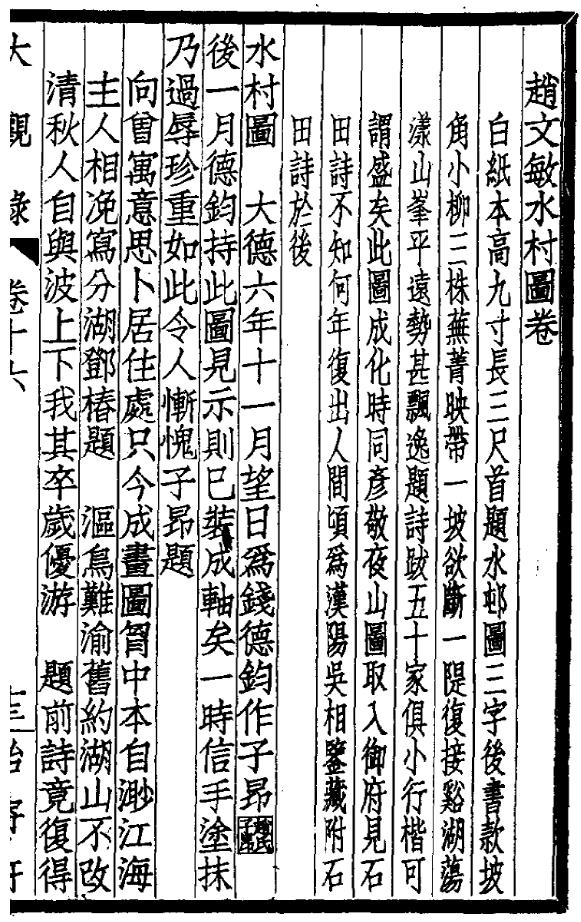 趙文敏水村圖卷
白紙本高九寸長三尺首題水邨圖三字後書款坡
角小柳二株蕪菁映帶一坡欲斷一隄復接谿湖蕩
漾山峯平遠勢甚飄逸題詩跋五十家俱小行楷可
謂盛矣此圖成化時同彥敬夜山圖取入御府見石
田詩不知何年復出人間頃為漢陽吳相鑒藏附石
田詩於後
水村圖 大德六年十一月望日為錢德鈞作子昂
後一月德鈞持此圖見示則已裝成軸矣一時信手塗抹
乃過辱珍重如此令人慚愧子昂題
向曾寓意思卜居住處只今成畫圖胷中本自渺江海
主人相浼寫分湖鄧椿題 漚鳥難渝舊約湖山不改
清秋人自與波上下我其卒歲優游 題前詩竟復得
大觀錄 卷十六